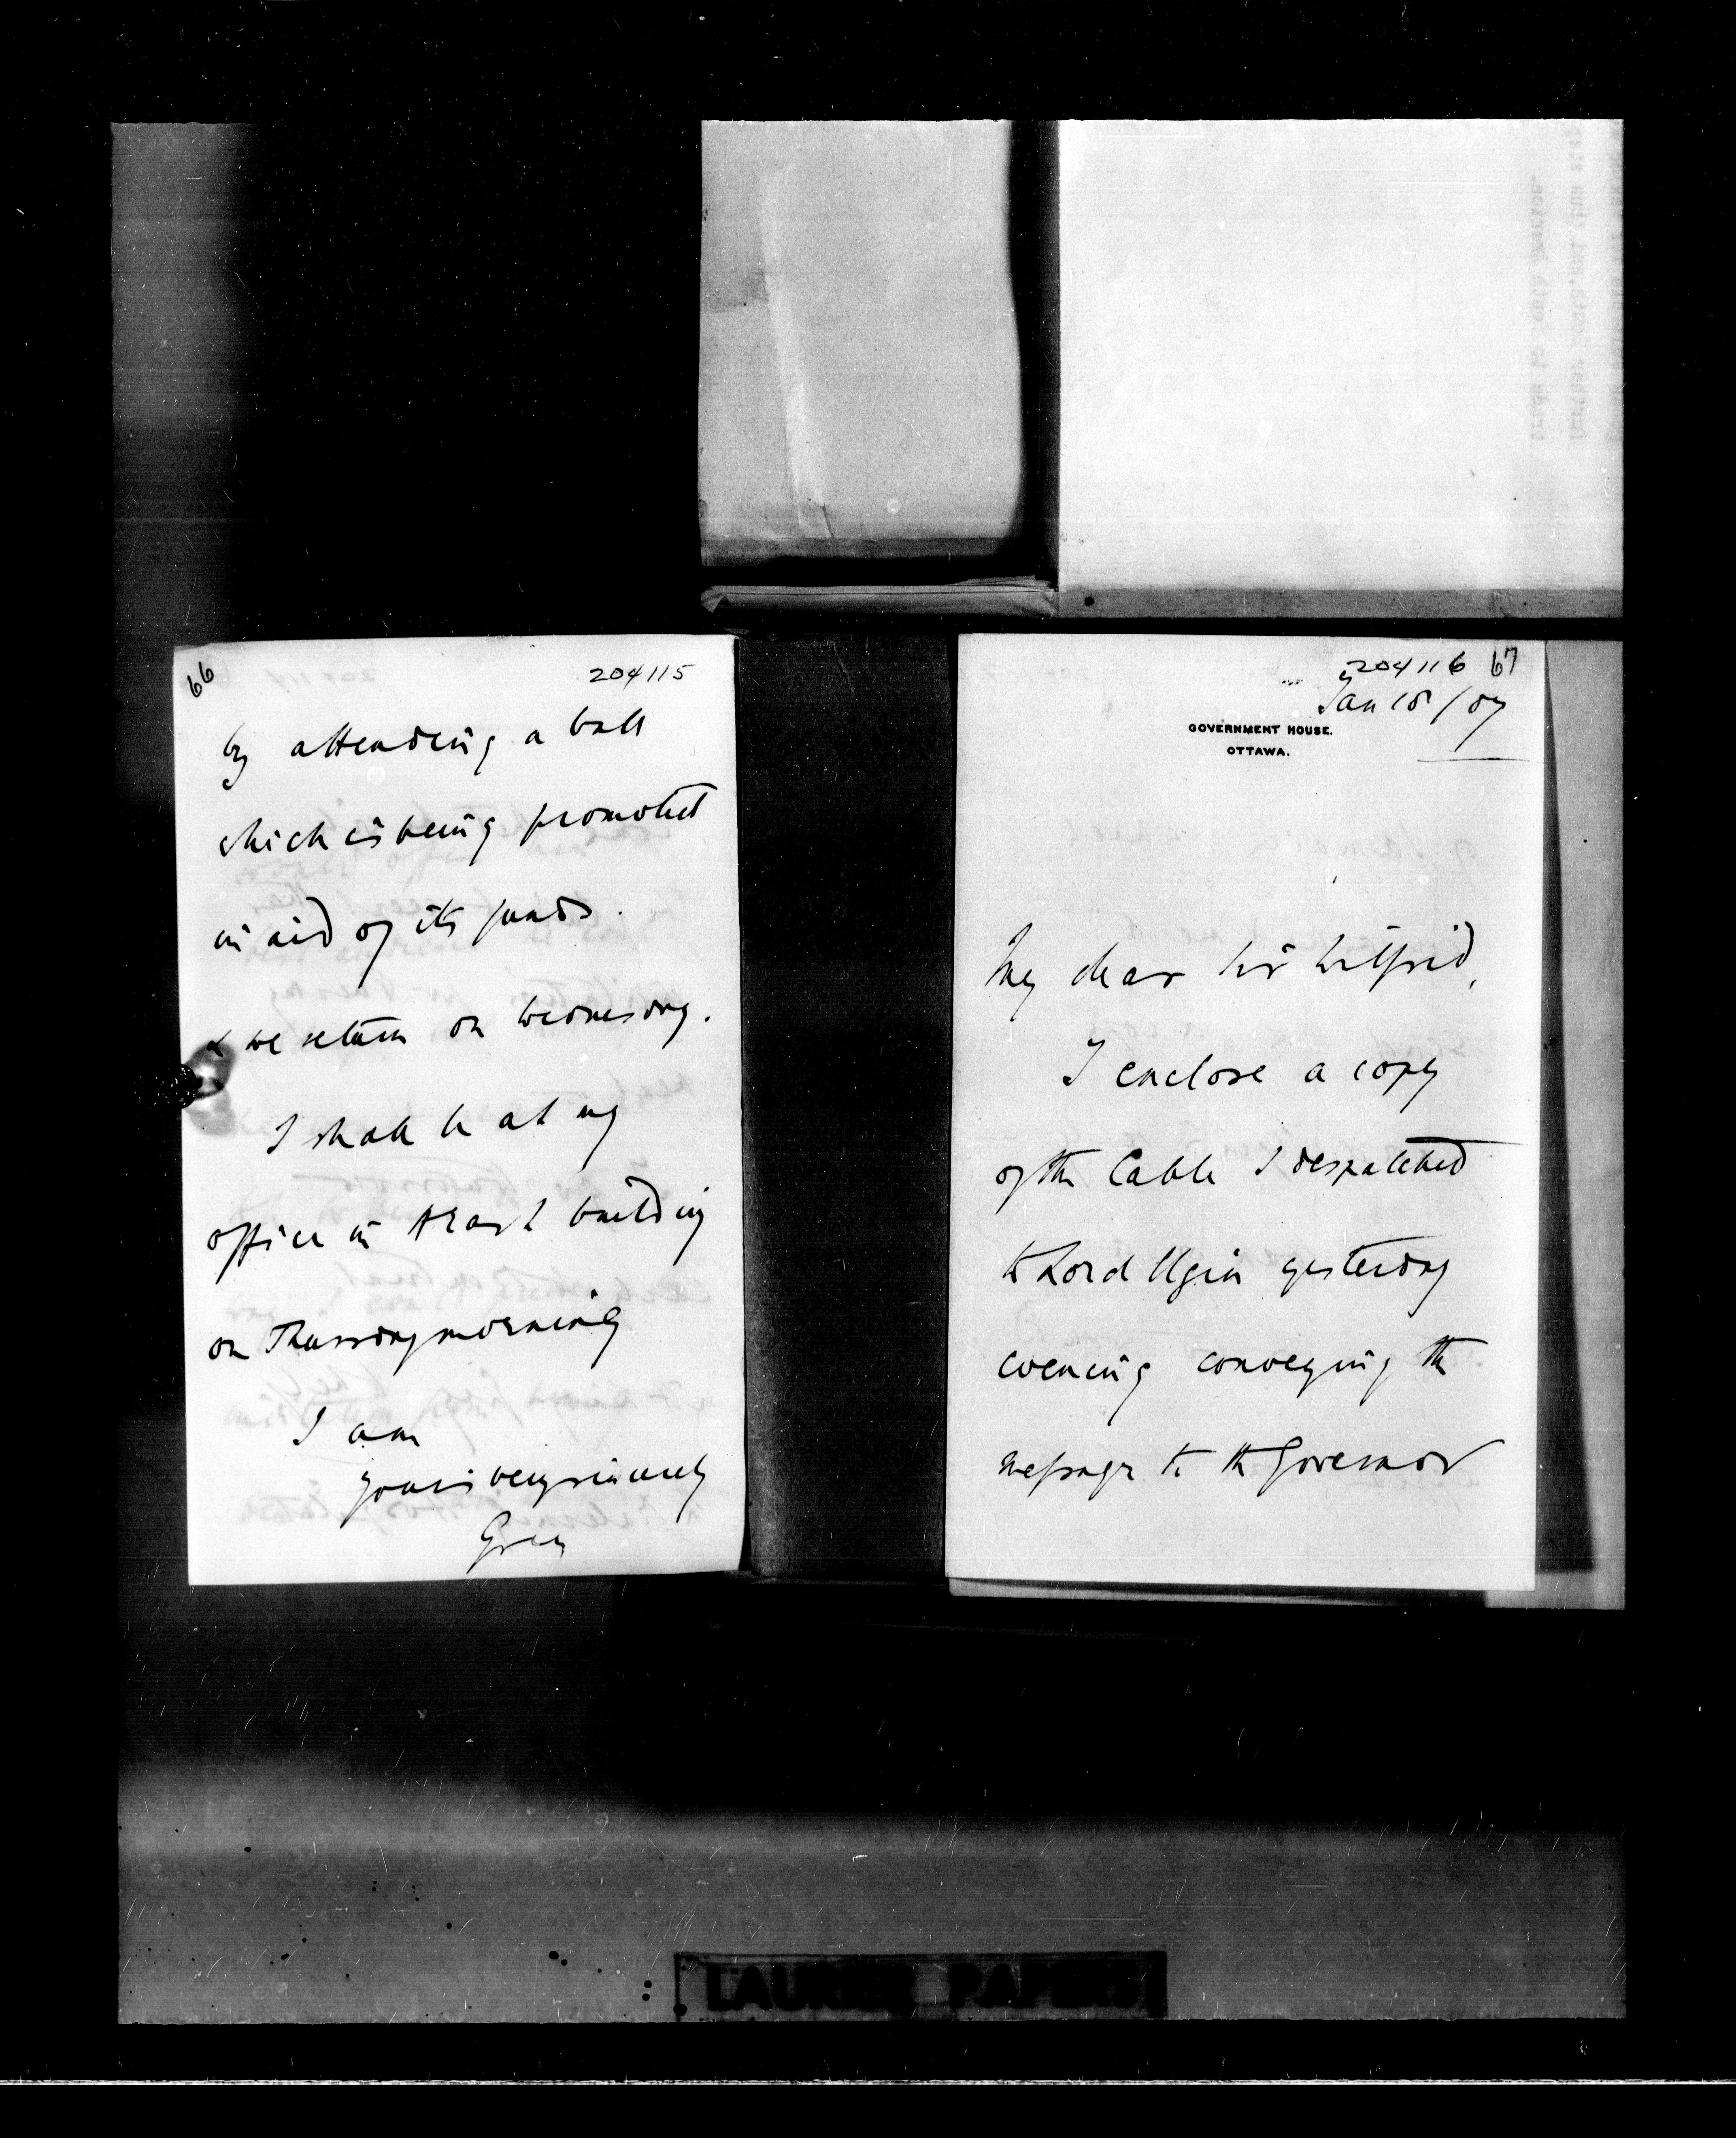 66
204115
by attending a ball
which is being promoted
in aid of its funds.
& we return on Wednesday.
I shall be at my
office in the East building
on Thursday morning
I am
yours very sincerely
Grey
204116 67
Jan 18/07
GOVERNMENT HOUSE.
OTTAWA.
My dear Sir Wilfrid,
I enclose a copy
of the Cable I despatched
to Lord Elgin yesterday
evening conveying the
message to the Governor
LAURIER PAPERS